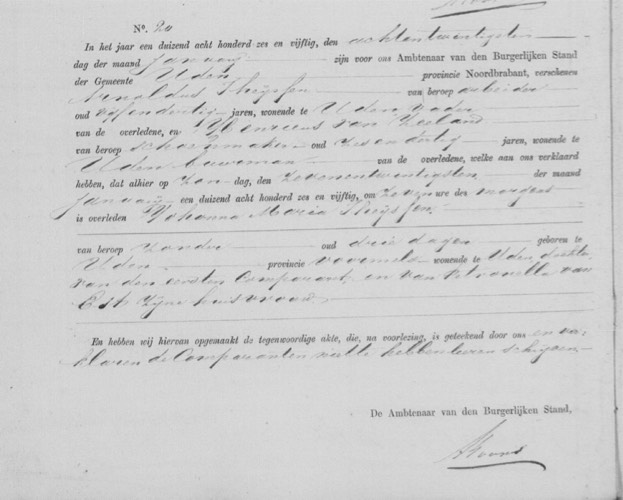 No. 20
In het jaar een duizend acht honderd zes en vijftig, den achtentwintigsten
dag der maand Januarij zijn voor ons Ambtenaar van den Burgerlijken Stand
der Gemeente Uden provincie Noordbrabant, verschenen
Arnoldus Thijssen van beroep arbeider
oud vijfendertig jaren, wonende te Uden vader
van de overledene, en Henricus van Zeeland
van beroep schoenmaker oud zesendertig jaren, wonende te
Uden van de overledene, welke aan ons verklaard
hebben, dat alhier op Zon dag, den zevenentwintigsten der maand
Januarij een duizend acht honderd zes en vijftig, om zeven ure des morgens
is overleden Johanna Maria Thijssen
van beroep zonder oud drie dagen geboren te
Uden provincie voormeld wonende te Uden dochter
van den eersten Comparant en van Petronella van
Esch zijne huisvrouw
En hebben wij hiervan opgemaakt de tegenwoordige akte, die, na voorlezing, is geteekend door ons en ver-
klaren de Comparanten niet te hebben leeren schrijven
De Ambtenaar van den Burgerlijken Stand,